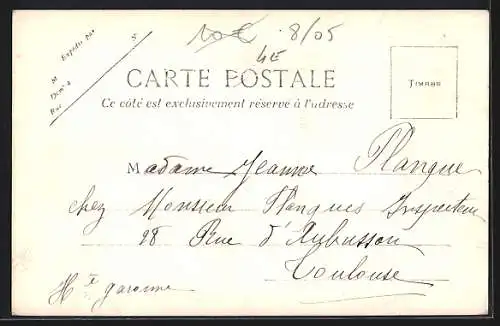 10€ 8/05
4E
Expédié par
M
Dem.t à
Rue
N°
CARTE POSTALE
Ce côté est exclusivement réservé à l'adresse
Timbre
Madame Jeanne Plangue
chez Monsieur Planques Inspecteur
28 Rue d'Aubusson
Toulouse
Hte garonne